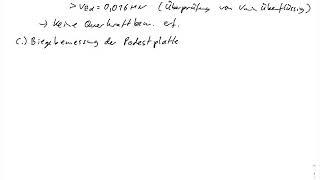 > VEd = 0,016 MN (Überprüfung von Vmin überflüssig)
→ keine Querkraftbew. erf.
c.) Biegebemessung der Podestplatte